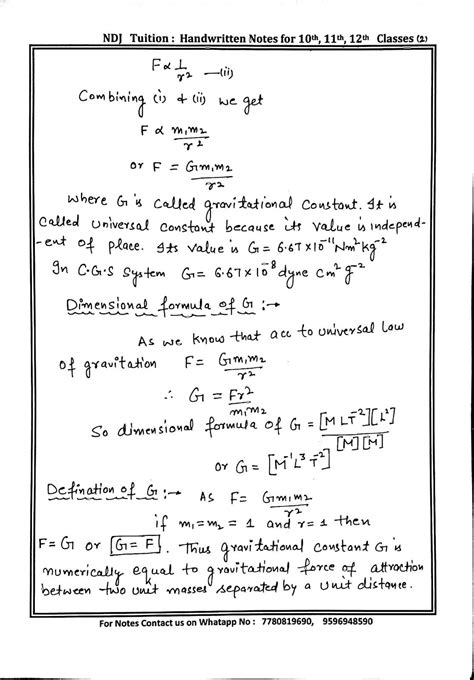 NDJ Tuition : Handwritten Notes for 10th, 11th, 12th Classes (2)
F ∝ 1/r² —(ii)
Combining (i) & (ii) we get
F ∝ m₁m₂/r²
or F = Gm₁m₂/r²
where G is called gravitational constant. It is
called universal constant because its value is independ-
-ent of place. Its value is G = 6.67×10⁻¹¹Nm²kg⁻²
In C.G.S System G = 6.67×10⁻⁸ dyne cm² g⁻²
Dimensional formula of G :→
As we know that acc to universal law
of gravitation F = Gm₁m₂/r²
∴ G = Fr²/m₁m₂
So dimensional formula of G = [MLT⁻²][L²]/[M][M]
or G = [M⁻¹L³T⁻²]
Defination of G :→ As F = Gm₁m₂/r²
if m₁=m₂ = 1 and r=1 then
F=G or G=F. Thus gravitational constant G is
numerically equal to gravitational force of attraction
between two unit masses separated by a unit distance.
For Notes Contact us on Whatapp No : 7780819690, 9596948590